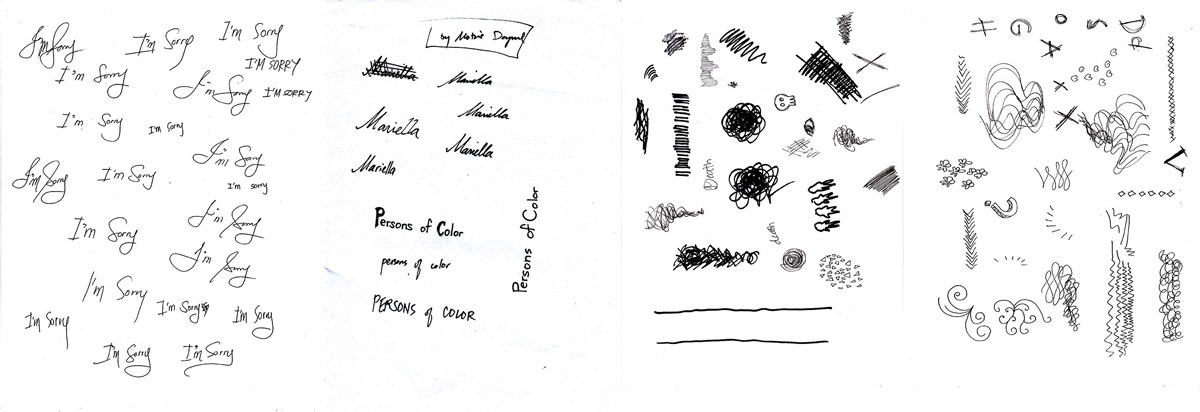 I'm Sorry
I'm Sorry
I'm Sorry
I'M SORRY
I'm Sorry
I'm Sorry
I'M SORRY
I'm Sorry
I'm sorry
I'm Sorry
I'm Sorry
I'm Sorry
I'm sorry
I'm Sorry
I'm Sorry
I'm Sorry
I'm Sorry
I'm Sorry
I'm Sorry
I'm Sorry
I'm Sorry
I'm Sorry
by
Mariella
Mariella
Mariella
Mariella
Mariella
Mariella
Persons of Color
persons of color
PERSONS of COLOR
Persons of Color
Death